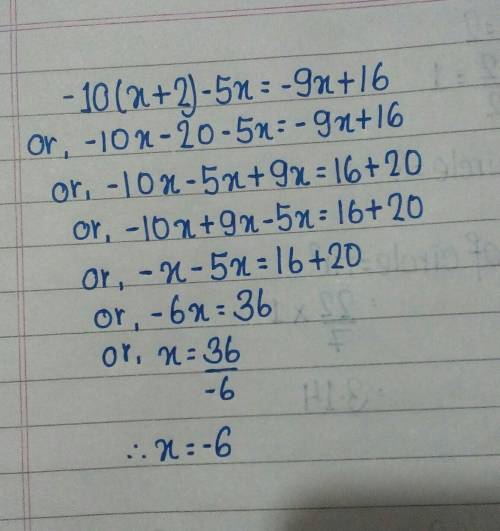 -10(x+2)-5x=-9x+16
or, -10x-20-5x=-9x+16
or, -10x-5x+9x=16+20
or, -10x+9x-5x=16+20
or, -x-5x=16+20
or, -6x=36
or, x=36/-6
∴x=-6